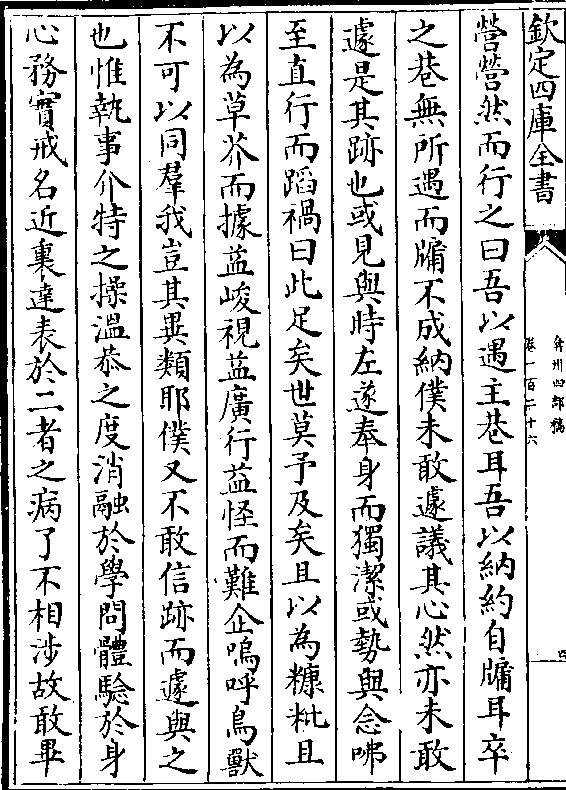 欽定四庫全書
弇州四部稿
卷一百二十六
四
營營然而行之曰吾以遇主巷耳吾以納約自牖耳卒
之巷無所遇而牖不成納僕未敢遽議其心然亦未敢
遽是其跡也或見與時左遂奉身而獨潔或勢與念咈
至直行而蹈禍曰此足矣世莫予及矣且以為糠粃且
以為草芥而據益峻視益廣行益怪而難企嗚呼鳥獸
不可以同羣我豈其異類耶僕又不敢信跡而遽與之
也惟執事介特之操溫恭之度消融於學問體驗於身
心務實戒名近裏達表於二者之病了不相涉故敢畢